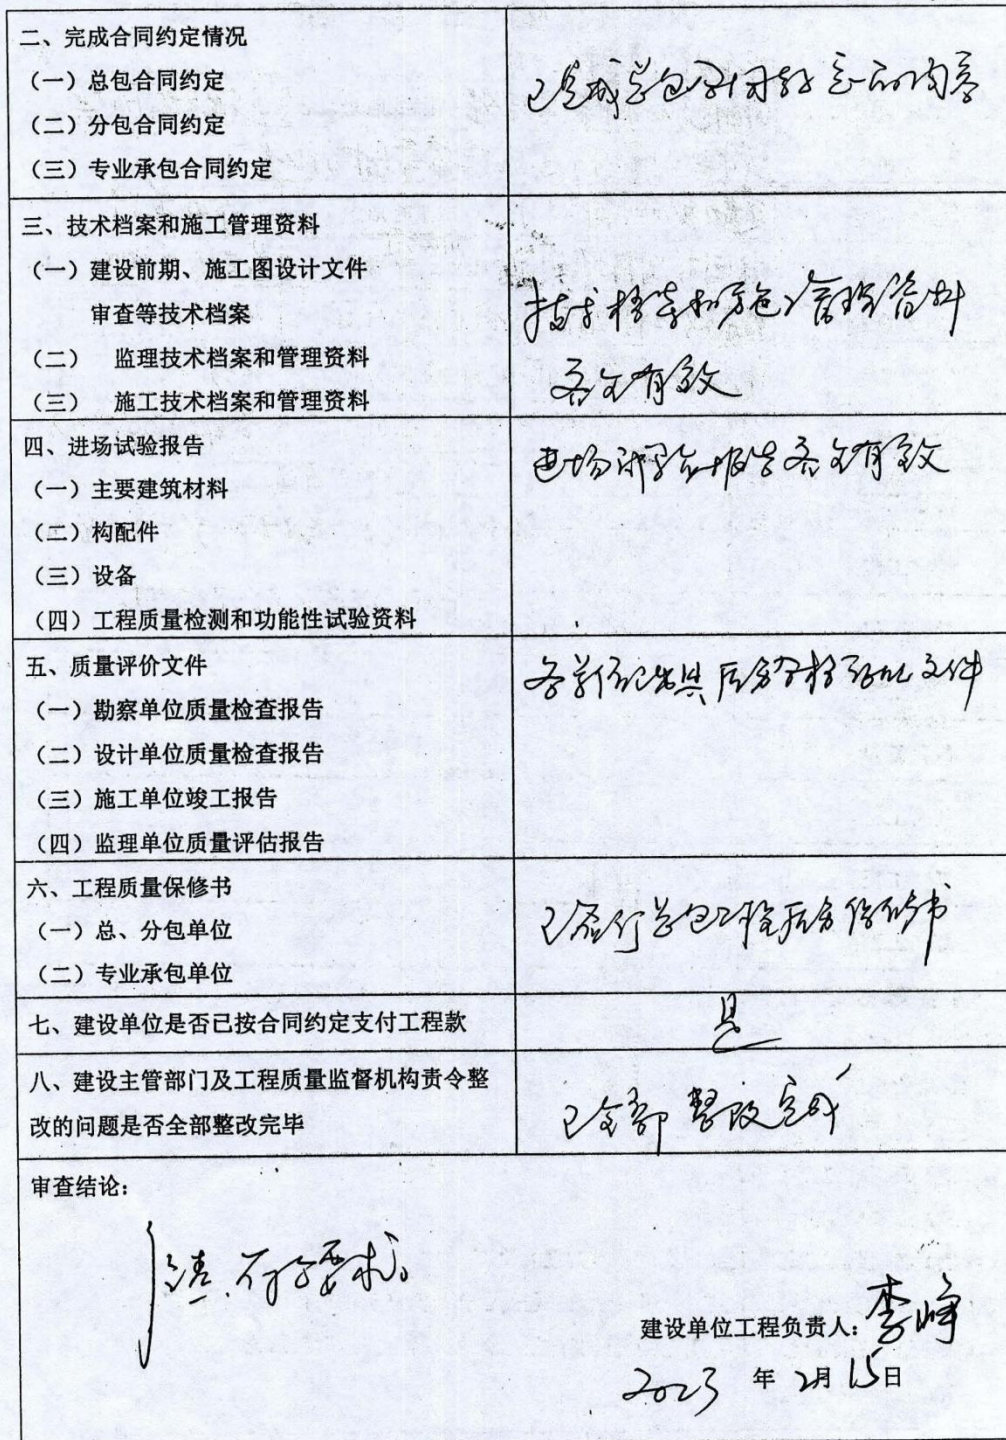 二、完成合同约定情况
（一）总包合同约定
（二）分包合同约定
（三）专业承包合同约定
已完成总包合同约定的内容
三、技术档案和施工管理资料
（一）建设前期、施工图设计文件
审查等技术档案
（二） 监理技术档案和管理资料
（三） 施工技术档案和管理资料
技术档案和施工管理资料
齐全有效
四、进场试验报告
（一）主要建筑材料
（二）构配件
（三）设备
（四）工程质量检测和功能性试验资料
进场试验报告齐全有效
五、质量评价文件
（一）勘察单位质量检查报告
（二）设计单位质量检查报告
（三）施工单位竣工报告
（四）监理单位质量评估报告
各单位已出具质量合格文件
六、工程质量保修书
（一）总、分包单位
（二）专业承包单位
已签订总包工程质量保修书
七、建设单位是否已按合同约定支付工程款
是
八、建设主管部门及工程质量监督机构责令整
改的问题是否全部整改完毕
已全部整改完成
审查结论：
符合要求。
建设单位工程负责人：李峰
2023 年 2月 15日